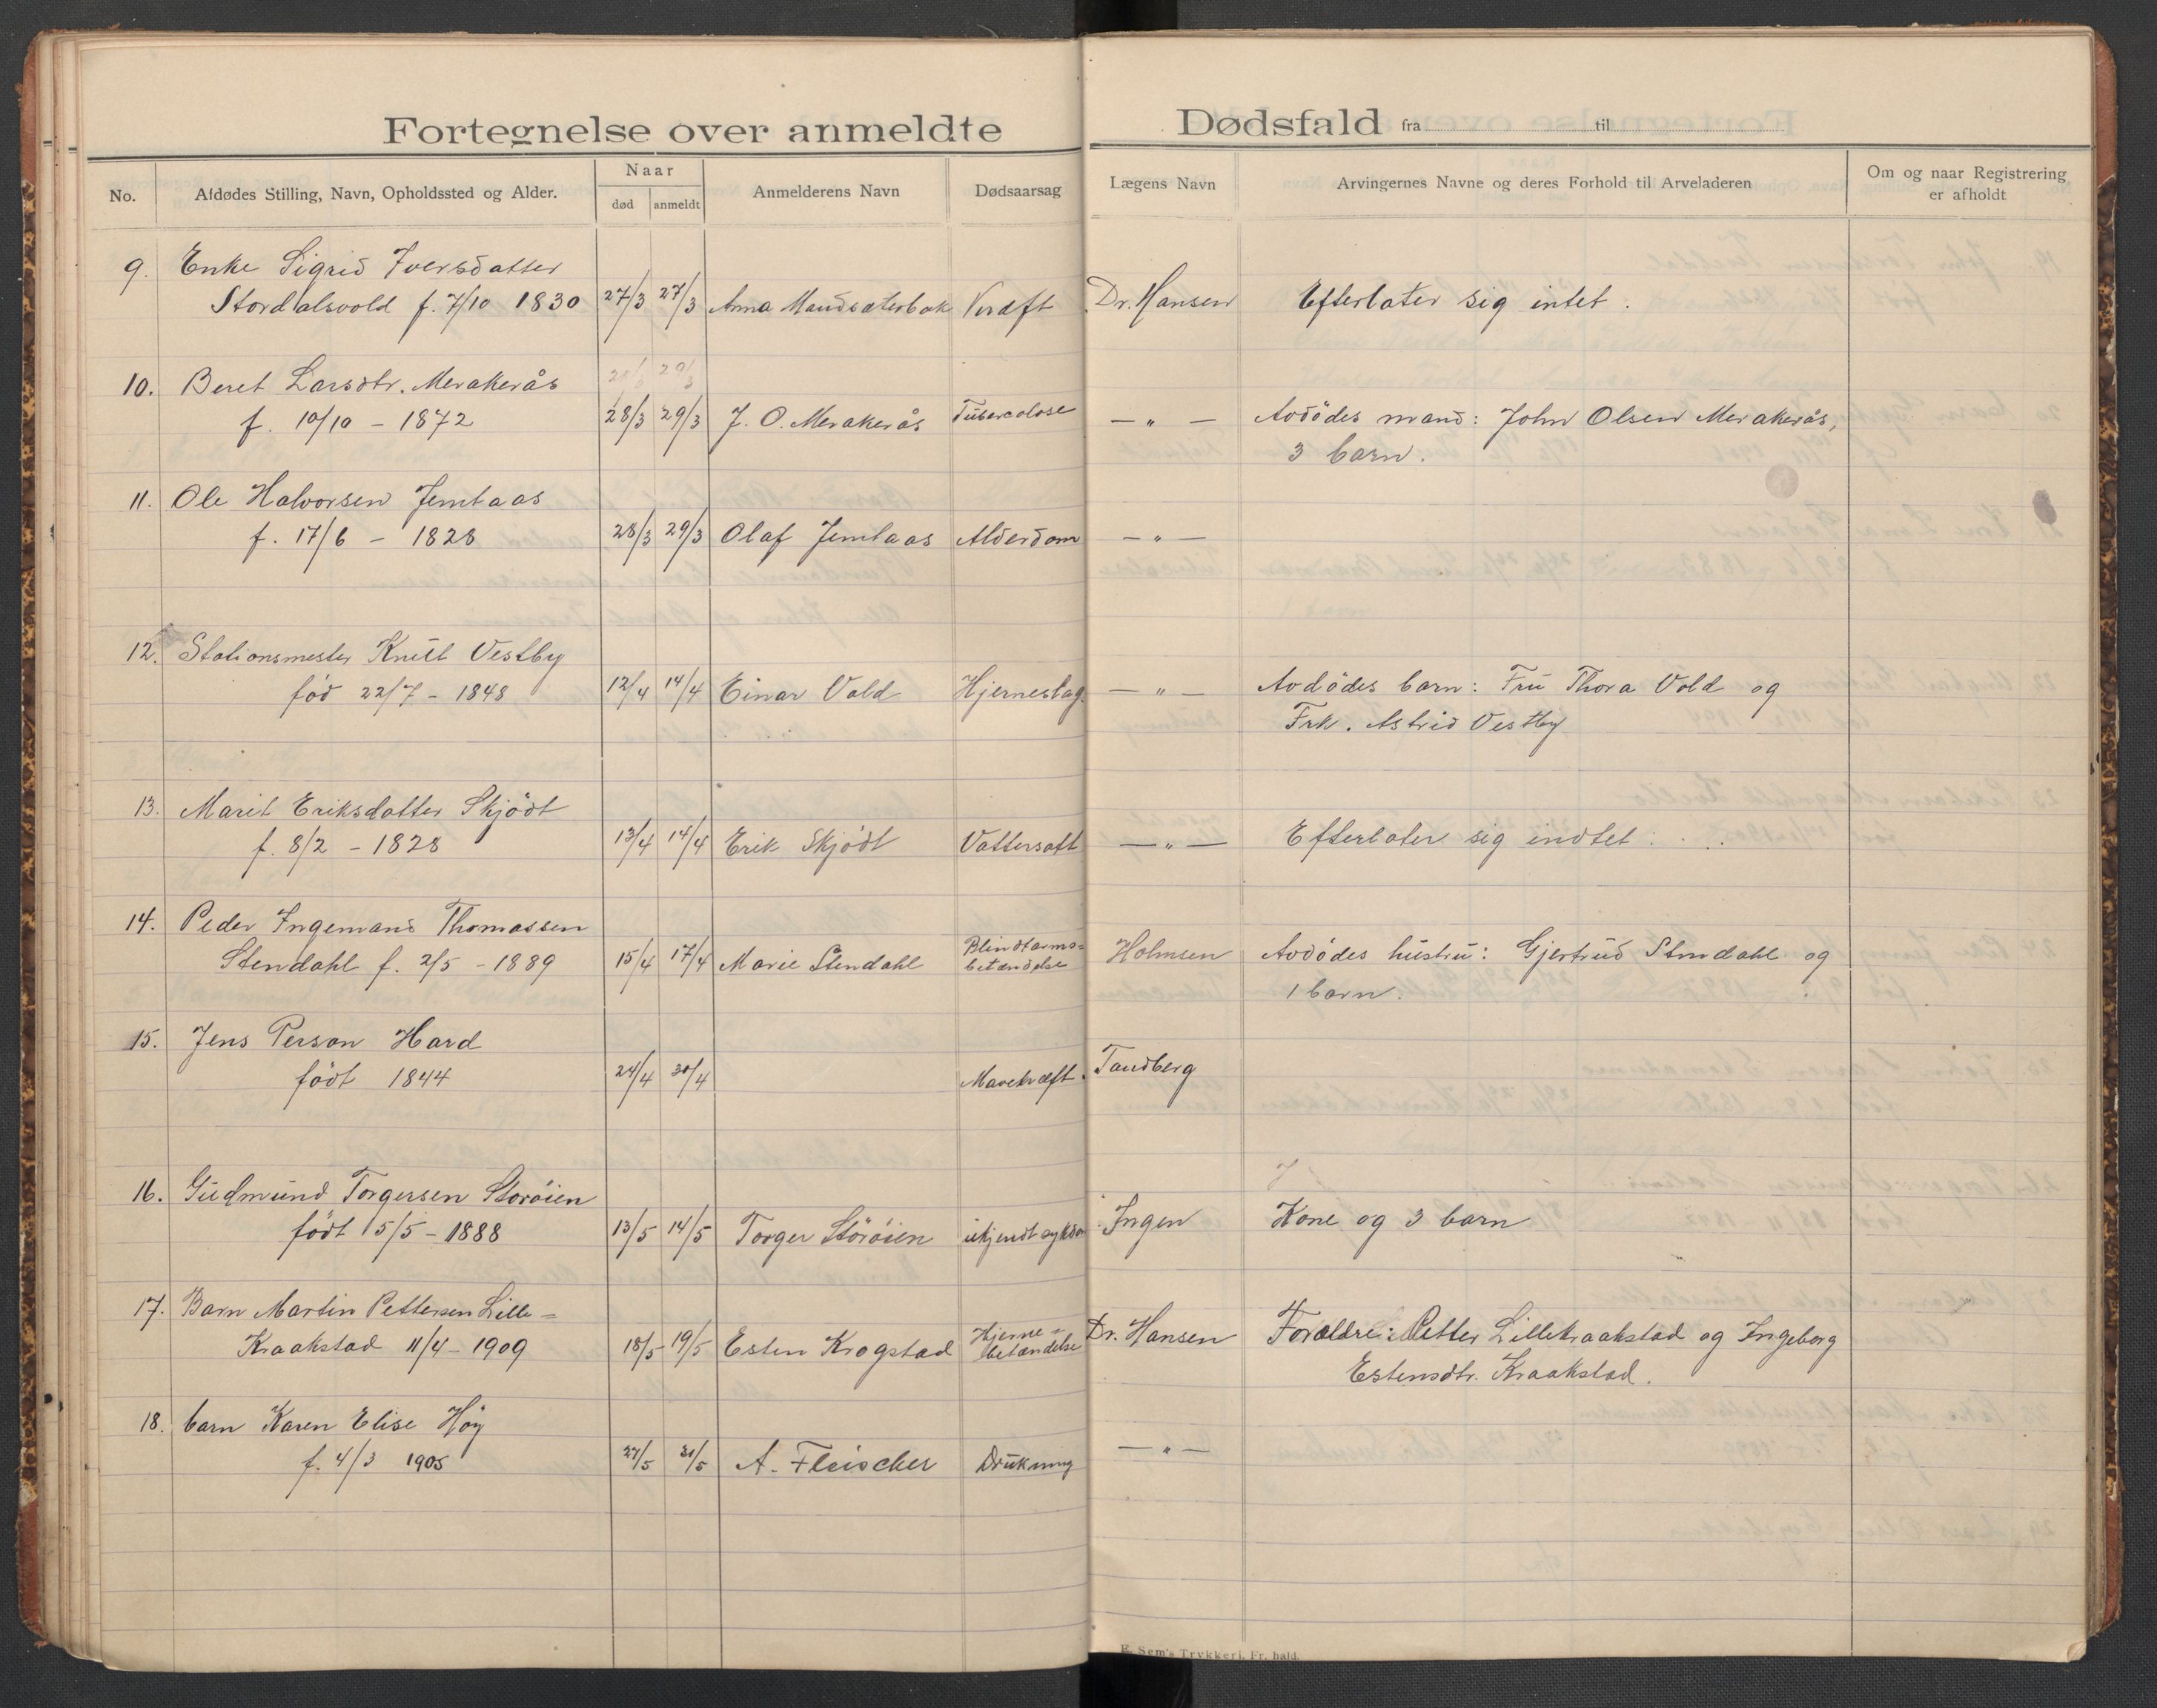 Fortegnelse over anmeldte Dødsfald fra til
No. Afdødes Stilling, Navn, Opholdssted og Alder. Naar død anmeldt Anmelderens Navn Dødsaarsag Lægens Navn Arvingernes Navne og deres Forhold til Arveladeren Om og naar Registrering er afholdt
9. Enke Sigrid Iversdatter
Stordalsvold f. 7/10 1830 27/3 27/3 Anna Dr. Hansen Efterlater sig intet.
10. Beret Larsdtr. Merakerås
f. 10/10 - 1872 28/3 29/3 J. O. Merakerås Tuberculose — " — Avdödes mand: John Olsen Merakerås,
3 barn.
11. Ole Halvorsen Jemtaas
f. 17/6 - 1828 28/3 29/3 Olaf Jemtaas Alderdom — " —
12. Stationsmester Knut Vestby
fød 22/7 - 1848 12/4 14/4 Einar Vold Hjerneslag. — " — Avdödes barn: Fru Thora Vold og
Frk. Astrid Vestby
13. Marit Eriksdatter Skjödt
f. 8/2 - 1828 13/4 14/4 Erik Skjödt Vattersott — " — Efterlater sig indtet.
14. Peder Ingemand Thomassen
Stendahl f. 2/5 - 1889 15/4 17/4 Marie Stendahl Blindtarms=
betændelse Holmsen Avdödes hustru: Gjertrud Stendahl og
1 barn.
15. Jens Person Hard
födt 1844 24/4 30/4 Mavekræft. Tandberg
16. Gudmund Torgersen Storöien
födt 15/5 - 1888 13/5 14/5 Torger Störöien ukjendt sykdom Ingen Kone og 3 barn
17. Barn Martin Pettersen Lille=
Kraakstad 11/4 - 1909 18/5 19/5 Esten Krogstad Hjerne=
betændelse Dr. Hansen Forældre: Petter Lillekraakstad og Ingeborg
Estensdtr. Kraakstad.
18. barn Karen Elise Höy
f. 4/3 1905 27/5 31/5 A. Fleischer Drukning — " —
E. Sem's Trykkeri, Fr. hald.